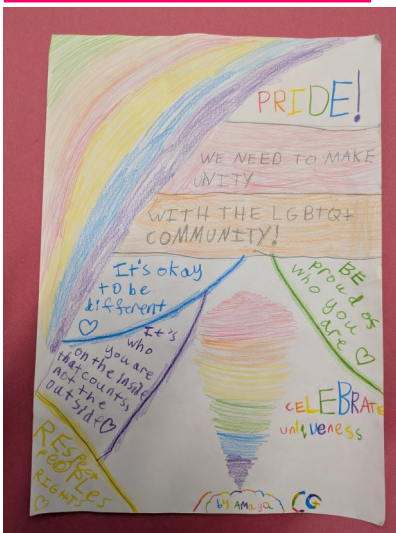 PRIDE!
WE NEED TO MAKE
UNITY
WITH THE LGBTQ+
COMMUNITY!
It's okay
to be
different
BE
proud of
who you
are
It's
who
you are
on the inside
that counts,
not the
outside
CELEBRATE
uniqueness
REspect
PeOPLes
RIGHTS
by AMaya
CG